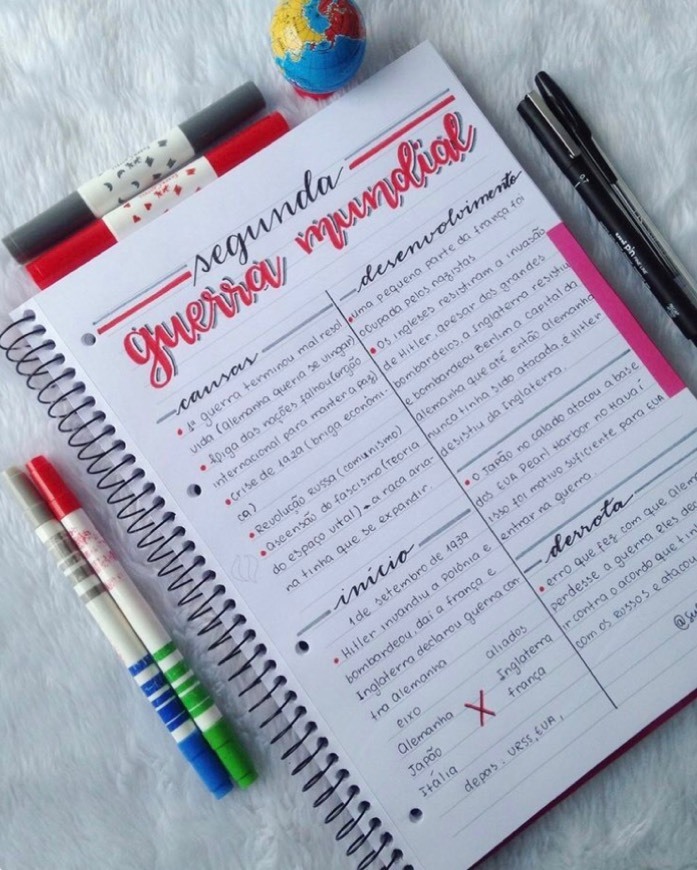 segunda
guerra mundial
causas
• 1ª guerra terminou mal resol
vida (Alemanha queria se vingar)
• A liga das nações falhou (orgão
internacional para manter a paz)
• Crise de 1929 (briga econômi-
ca)
• Revolução Russa (comunismo)
• ascensão do fascismo (teoria
do espaço vital) → a raça aria-
na tinha que se expandir.
início
1 de setembro de 1939
• Hitler invandiu a Polônia e
bombardeou, daí a frança e
Inglaterra declarou guerra con
tra Alemanha
eixo aliados
Alemanha X Inglaterra
Japão frança
Itália
depois, URSS, EUA,
desenvolvimento
• uma pequena parte da frança foi
ocupada pelos nazistas
• Os ingleses resistiram a invasão
de Hitler, apesar dos grandes
bombardeios, a Inglaterra resistiu
e bombardeou Berlim a capital da
alemanha que até então Alemanha
nunca tinha sido atacada, e Hitler
desistiu da Inglaterra.
• O Japão no calado atacou a base
dos EUA Pearl Harbor no Havaí
isso foi motivo suficiente para EUA
entrar na guerra.
derrota
• erro que fez com que Alem
perdesse a guerra. Eles dec
ir contra o acordo que tin
com os Russos e atacou